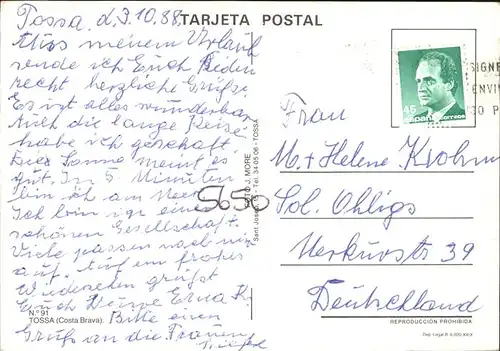 TARJETA POSTAL
Tossa, d. 3.10.88.
Aus meinem Urlaub
sende ich Euch Beiden
recht herzliche Grüße.
Es ist alles wunderbar
Auch die lange Reise
habe ich geschaft.
Sonne meint es
gut. In 5 Minuten
bin ich am Meer
Ich bin in eine
schönen Gesellschaft.
Viele passen noch
auf. Auf ein frohes
Wiedersehen grüßt
Euch Erna K.
Bitte einen
Gruß an die Frauen
N.º 91
TOSSA (Costa Brava).
5650
FOTO J. MORE
Sant Josep - Tel. 34 05 06 - TOSSA
45
España correos
SIGNE
ENVI
SO P
Frau
M. + Helene Krohm
Sol. Ohligs
Merkurstr 39
Deutschland
REPRODUCCIÓN PROHIBIDA
Dep. Legal B.